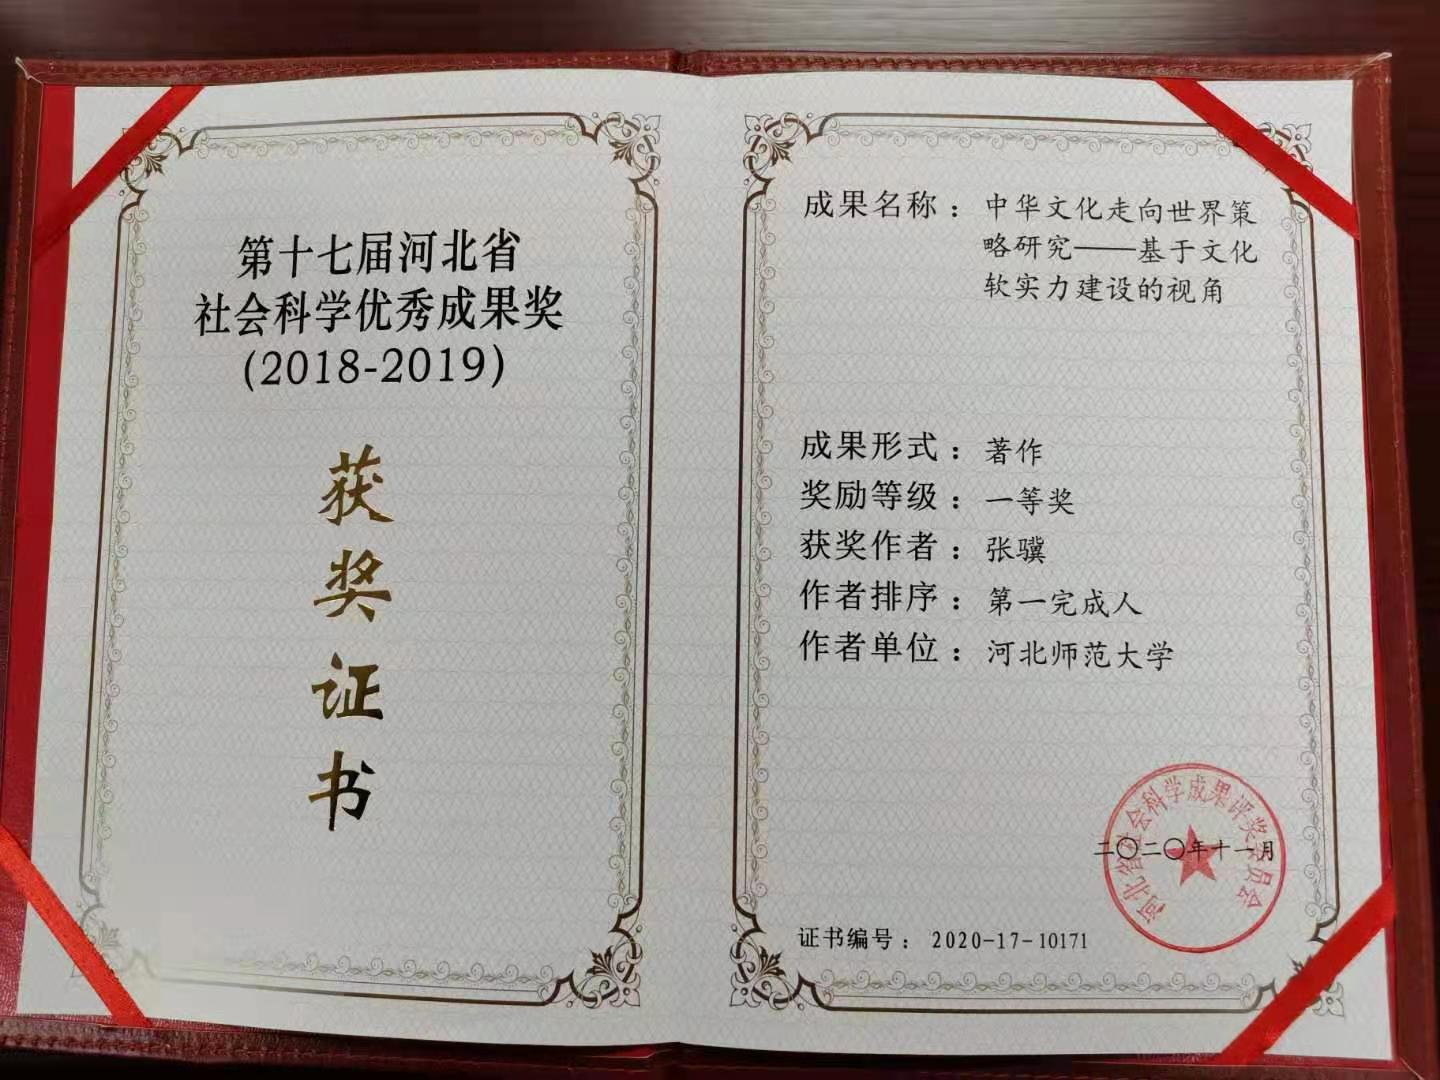 第十七届河北省
社会科学优秀成果奖
(2018-2019)
获
奖
证
书
成果名称：中华文化走向世界策
略研究——基于文化
软实力建设的视角
成果形式：著作
奖励等级：一等奖
获奖作者：张骥
作者排序：第一完成人
作者单位：河北师范大学
河北省社会科学成果评奖委员会
二〇二〇年十一月
证书编号：2020-17-10171